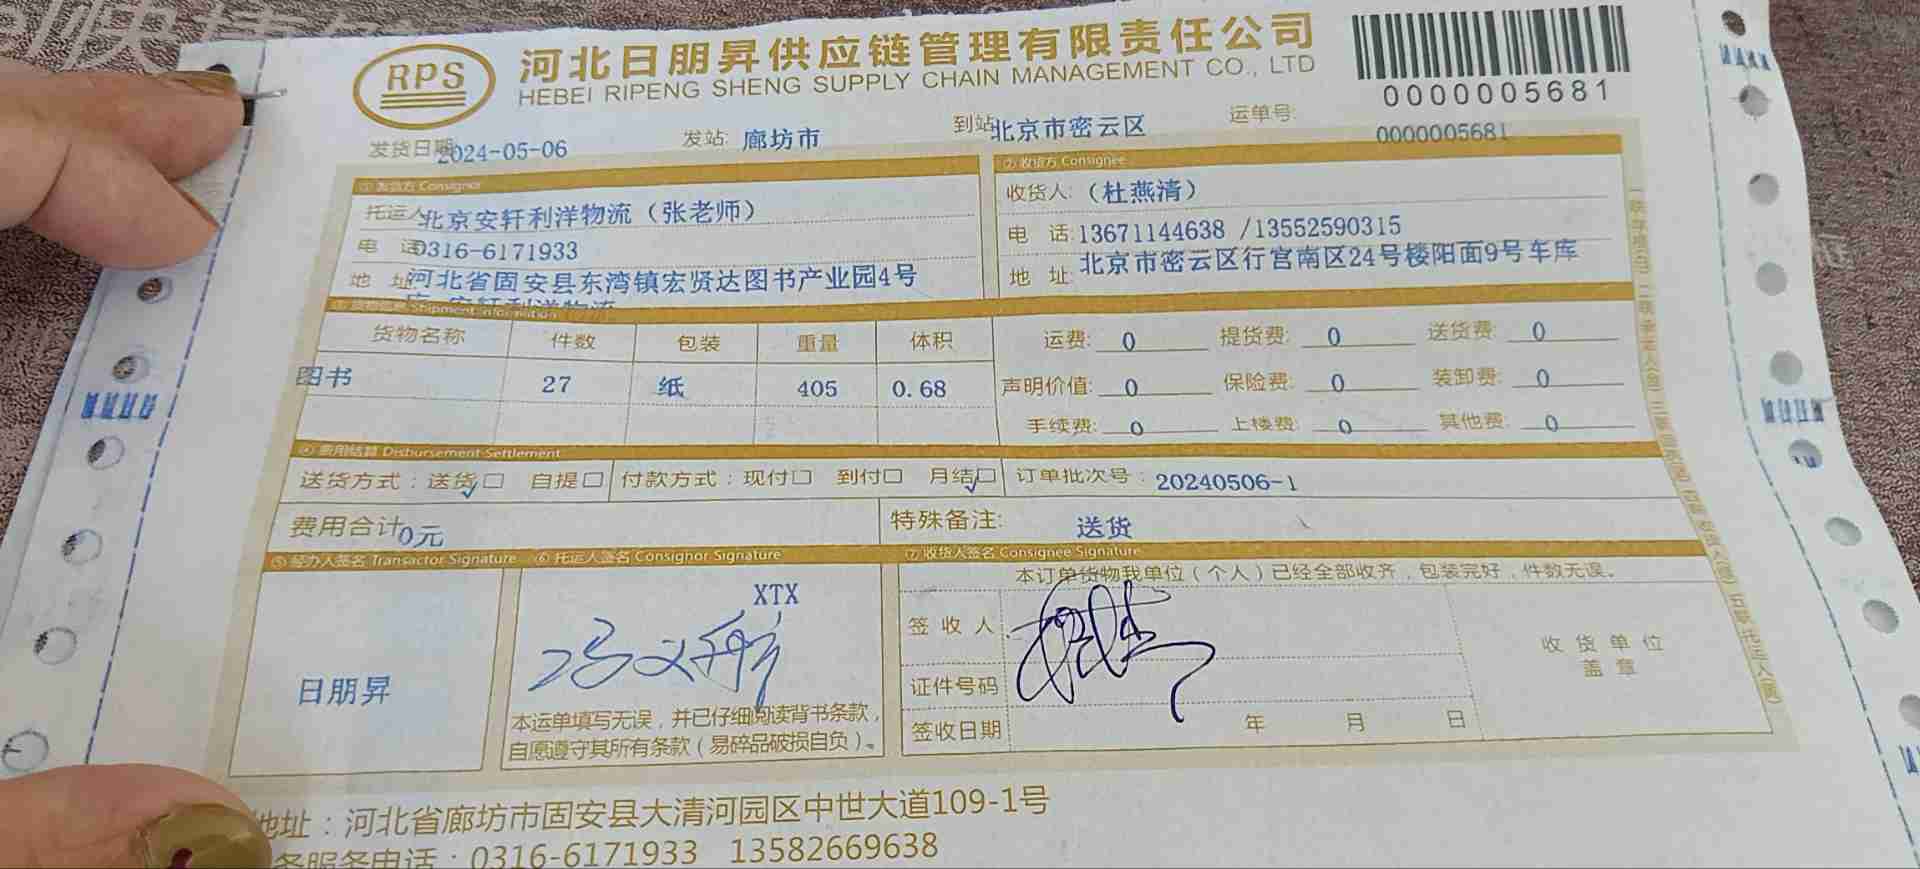 RPS
河北日朋昇供应链管理有限责任公司
HEBEI RIPENG SHENG SUPPLY CHAIN MANAGEMENT CO., LTD
0000005681
发货日期 2024-05-06 发站: 廊坊市 到站 北京市密云区 运单号: 0000005681
①发货方 Consignor
托运人 北京安轩利洋物流（张老师）
电 话 0316-6171933
地 址 河北省固安县东湾镇宏贤达图书产业园4号
安轩利洋物流
②收货方 Consignee
收货人: （杜燕清）
电 话: 13671144638 /13552590315
地 址: 北京市密云区行宫南区24号楼阳面9号车库
Shipment Information
货物名称 件数 包装 重量 体积
图书 27 纸 405 0.68
运费: 0 提货费: 0 送货费: 0
声明价值: 0 保险费: 0 装卸费: 0
手续费: 0 上楼费: 0 其他费: 0
④费用结算 Disbursement Settlement
送货方式：送货☑ 自提□ 付款方式：现付□ 到付□ 月结☑ 订单批次号：20240506-1
费用合计 0元 特殊备注: 送货
⑤经办人签名 Transactor Signature ⑥托运人签名 Consignor Signature ⑦收货人签名 Consignee Signature
日朋昇
XTX
本运单填写无误，并已仔细阅读背书条款，
自愿遵守其所有条款（易碎品破损自负）。
本订单货物我单位（个人）已经全部收齐，包装完好，件数无误。
签收人
证件号码
签收日期 年 月 日
收货单位
盖章
地址：河北省廊坊市固安县大清河园区中世大道109-1号
务服务电话：0316-6171933 13582669638